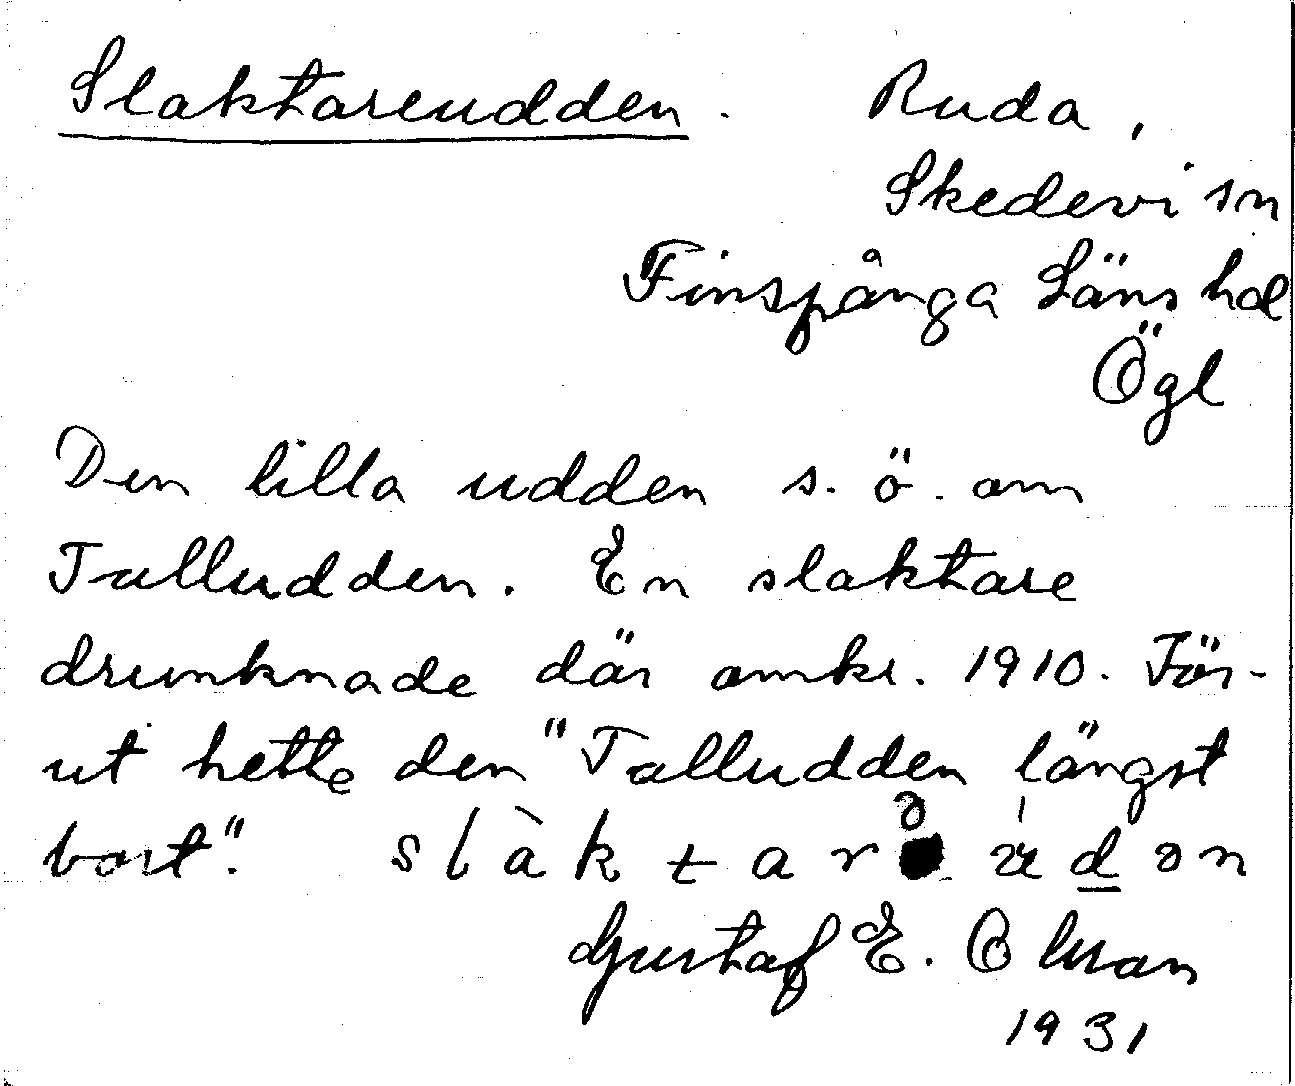 Slaktareudden. Ruda,
Skedevi sn
Finspånga Läns hd
Ögl
Den lilla udden s. ö. om
Talludden. En slaktare
drunknade där omkr. 1910. För-
ut hette den "Talludden längst
bort". slàktarə ùdən
Gustaf E. Olsson
1931